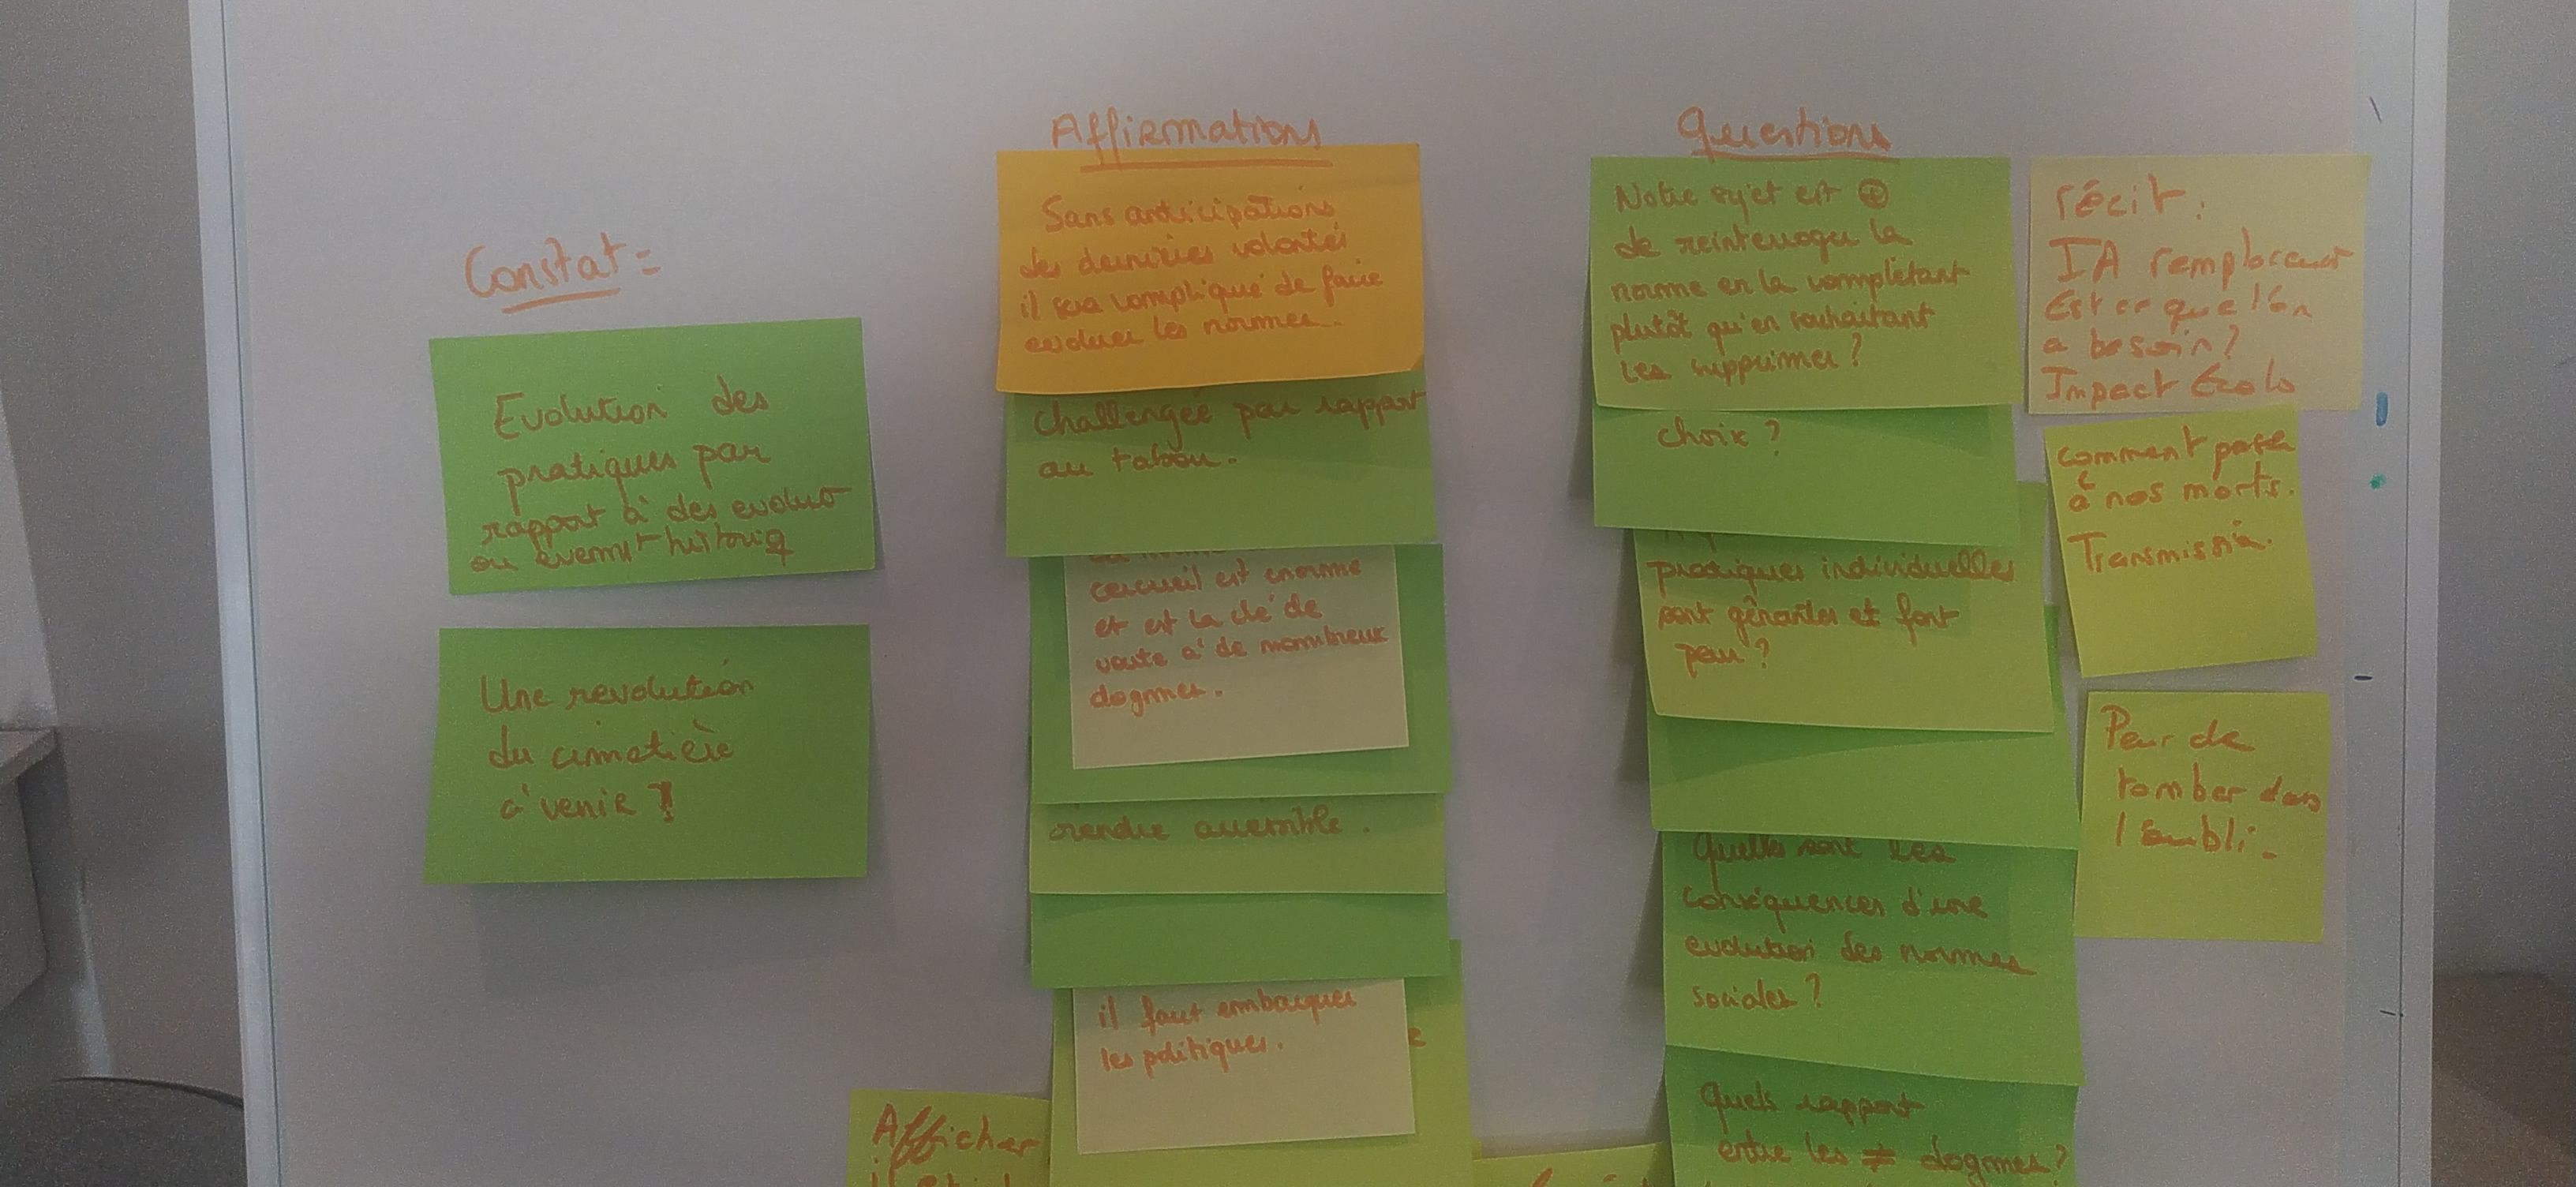 Constat =
Evolution des
pratiques par
rapport à des evoluo
ou évenmt historiq
Une revolution
du cimetière
à venir ?!
Affirmations
Sans anticipations
des dernières volontés
il sera compliqué de faire
evoluer les normes.
challengée par rapport
au tabou.
cercueil est enorme
et est la clé de
voute à de nombreux
dogmes.
rendre accessible.
il faut embarquer
les politiques.
Afficher
Questions
Notre sujet est ⊕
de reinterroger la
norme en la complétant
plutôt qu'en souhaitant
les supprimer ?
choix ?
pratiques individuelles
sont gênantes et font
peur ?
Quelles sont les
conséquences d'une
evolution des normes
sociales ?
Quels rapport
entre les ≠ dogmes ?
récit :
IA remplacent
Est ce que l'on
a besoin ?
Impact Ecolo
Comment parler
à nos morts.
Transmission.
Peur de
tomber dans
l'oubli.